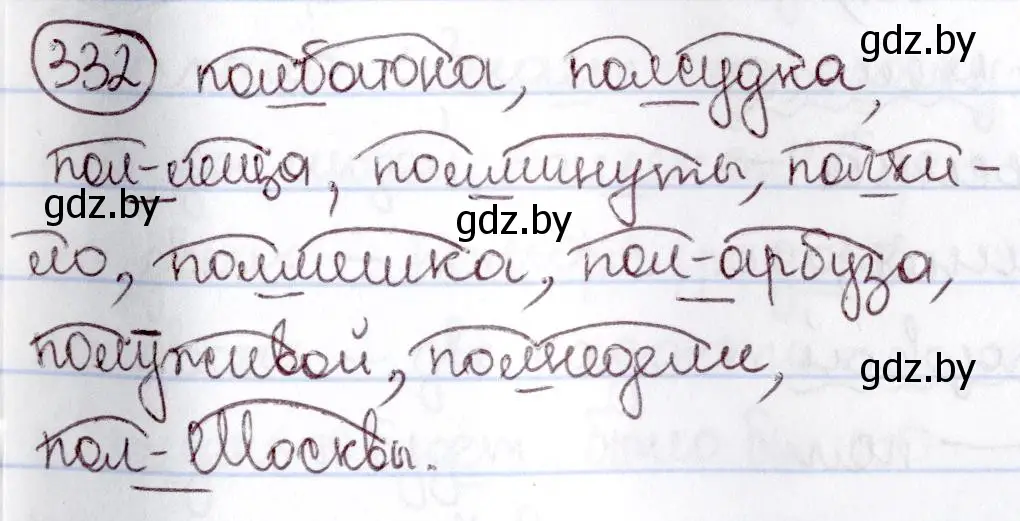 gdz.by
332 полбатона, полсудка,
пол-леща, полминуты, полки-
gdz.by gdz.by
ло, полмешка, пол-арбуза,
полуживой, полнедели,
gdz.by
пол-Москвы.